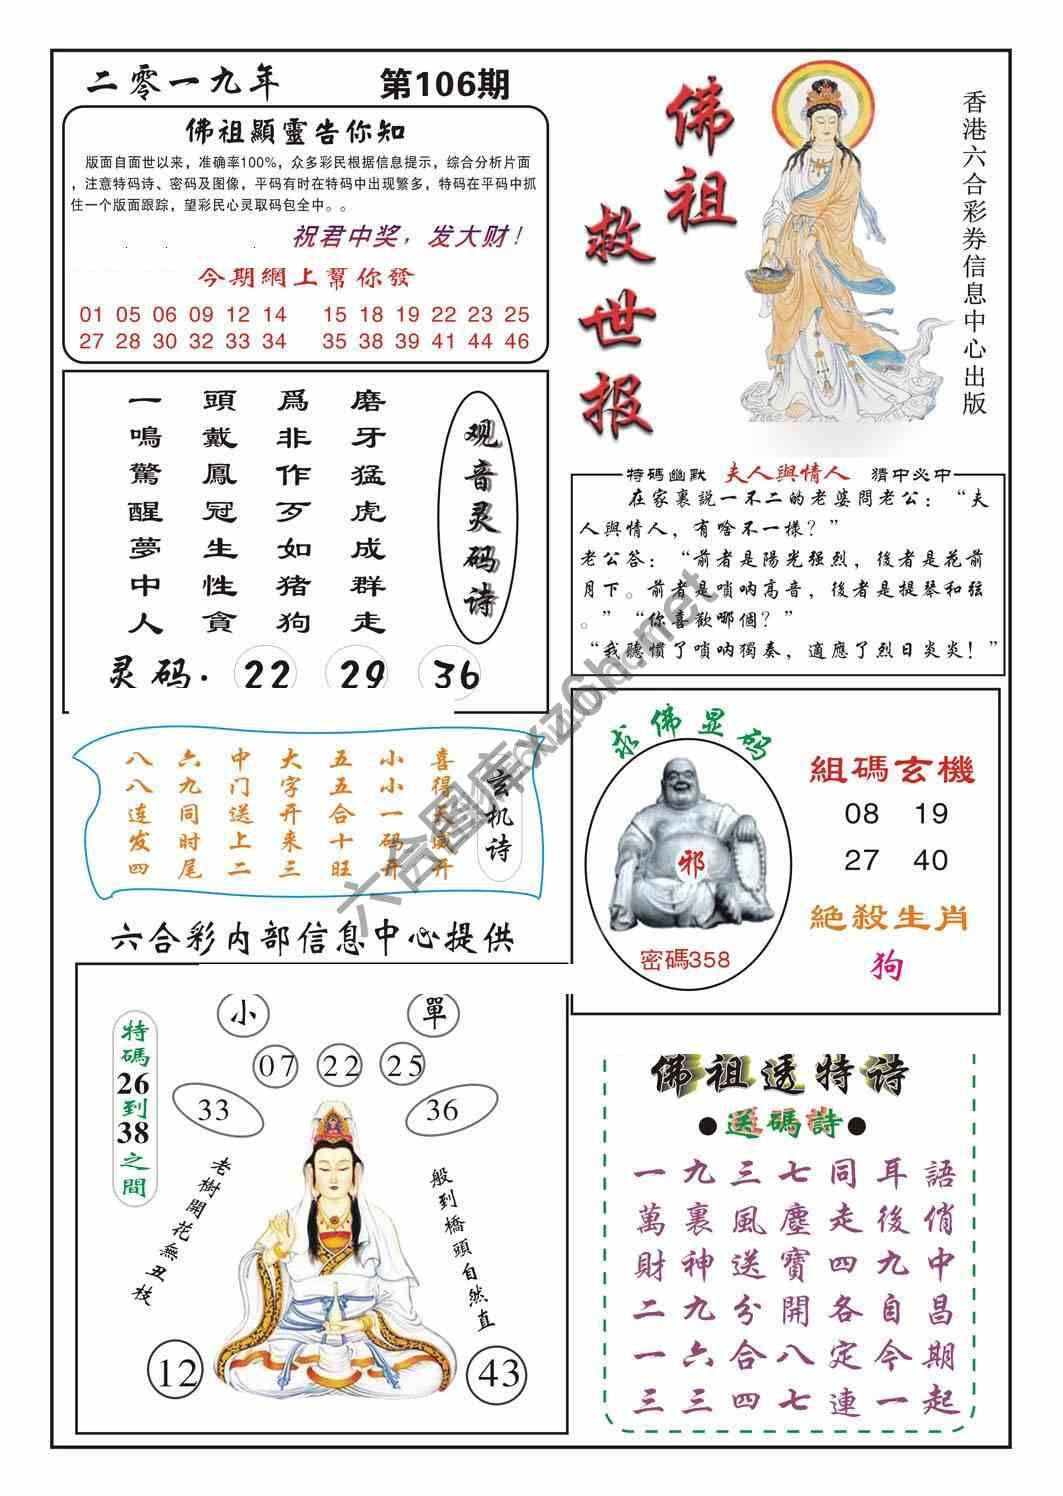 二零一九年 第106期
佛祖顯靈告你知
版面自面世以来，准确率100%，众多彩民根据信息提示，综合分析片面
，注意特码诗、密码及图像，平码有时在特码中出现繁多，特码在平码中抓
住一个版面跟踪，望彩民心灵取码包全中。。
祝君中奖，发大财！
今期網上幫你發
01 05 06 09 12 14 15 18 19 22 23 25
27 28 30 32 33 34 35 38 39 41 44 46
佛祖
救世报
香港六合彩券信息中心出版
观音灵码诗
磨牙猛虎成群走
爲非作歹如猪狗
頭戴鳳冠生性貪
一鳴驚醒夢中人
灵码. 22 29 36
特碼幽默 夫人與情人 猜中必中
在家裏説一不二的老婆問老公：“夫
人與情人，有啥不一樣？”
老公答：“前者是陽光强烈，後者是花前
月下。前者是唢呐高音，後者是提琴和弦
。”“你喜歡哪個？”
“我聽慣了唢呐獨奏，適應了烈日炎炎！”
玄机诗
喜得天
开
小小一码开
五五合十旺
大字开来三
中门送上二
六九同时尾
八八连发四
六合彩内部信息中心提供
求佛显码
邪
密碼358
組碼玄機
08 19
27 40
絕殺生肖
狗
小 單
07 22 25
33 36
特碼26到38之間
老樹開花無丑枝
般到橋頭自然直
12 43
佛祖透特诗
●送碼詩●
一九三七同耳語
萬裏風塵走後俏
財神送寶四九中
二九分開各自昌
一六合八定今期
三三四七連一起
六合图库xz6h.net